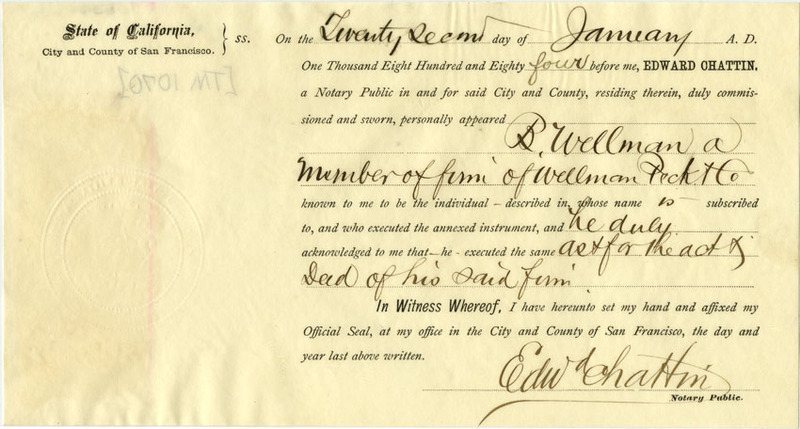 State of California,
City and County of San Francisco.
ss.
On the Twenty second day of January A. D.
One Thousand Eight Hundred and Eighty four before me, EDWARD CHATTIN,
a Notary Public in and for said City and County, residing therein, duly commis-
sioned and sworn, personally appeared
B. Wellman a
Member of firm of Wellman Peck & Co
known to me to be the individual – described in, whose name is subscribed
to, and who executed the annexed instrument, and he duly
acknowledged to me that – he – executed the same as & for the act &
Deed of his said firm
In Witness Whereof, I have hereunto set my hand and affixed my
Official Seal, at my office in the City and County of San Francisco, the day and
year last above written.
Edwd Chattin
Notary Public.